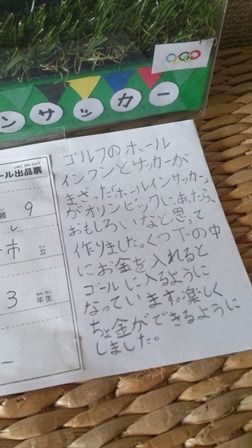 ンサッカー
しゅっぴんひょう
ール出品票
9
市
立
3
年生
ゴルフのホール
インワンとサッカーが
まざった「ホールインサッカー」
がオリンピックにあったら、
おもしろいなと思って
作りました。くつ下の中
にお金を入れると
ゴールに入るように
なっています。楽しく
ちょ金ができるように
しました。